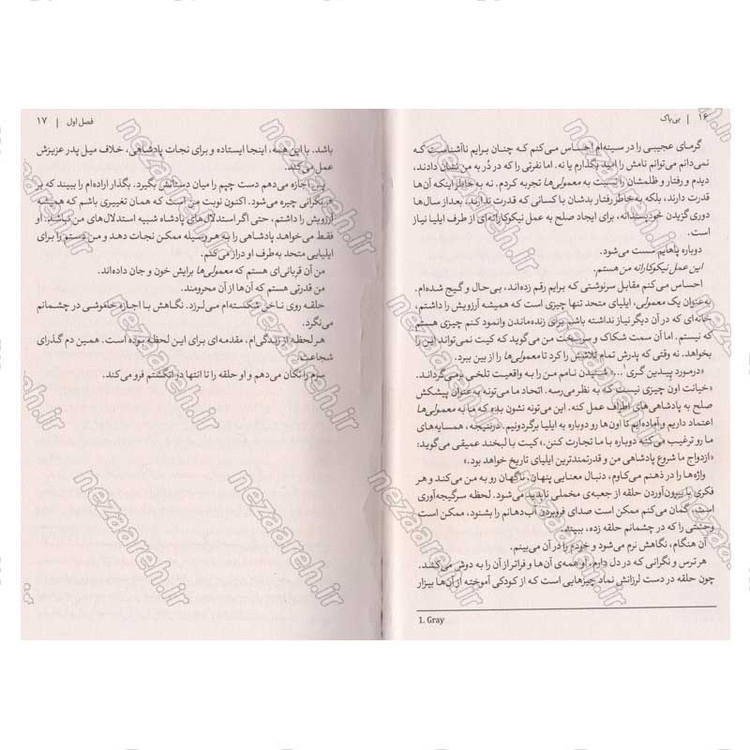 ۱۶ | بی‌باک
گرمای عجیبی را در سینه‌ام احساس می‌کنم که چنان برایم ناآشناست که
نمی‌دانم می‌توانم نامش را امید بگذارم یا نه. اما نفرتی را که در دُر به من نشان دادند،
دیدم و رفتار و ظلمشان را نسبت به معمولی‌ها تجربه کردم. نه به خاطر اینکه آن‌ها
قدرت دارند، بلکه به‌خاطر رفتار بدشان با کسانی که قدرت ندارند، بعد از سال‌ها
دوری‌گزیدن خودپسندانه، برای ایجاد صلح به عمل نیکوکارانه‌ای از طرف ایلیا نیاز
است.
دوباره پاهایم سست می‌شود.
این عمل نیکوکارانه من هستم.
احساس می‌کنم مقابل سرنوشتی که برایم رقم زده‌اند، بی‌حال و گیج شده‌ام.
به‌عنوان یک معمولی، ایلیای متحد تنها چیزی است که همیشه آرزویش را داشتم،
خانه‌ای که در آن دیگر نیاز نداشته باشم برای زنده‌ماندن وانمود کنم چیزی هستم
که نیستم. اما آن سمت شکاک و سرسخت من می‌گوید که کیت نمی‌تواند این را
بخواهد. نه وقتی که پدرش تمام تلاشش را کرد تا معمولی‌ها را از بین ببرد.
«درمورد پیدین گری۱...» شنیدن نامم من را به واقعیت تلخی برمی‌گرداند.
«خیانت اون چیزی نیست که به نظر می‌رسه. اتحاد ما می‌تونه به‌عنوان پیشکش
صلح به پادشاهی‌های اطراف عمل کنه. این می‌تونه نشون بده که ما به معمولی‌ها
اعتماد داریم و آماده‌ایم تا اون‌ها رو دوباره به ایلیا برگردونیم. درنتیجه، همسایه‌های
ما رو ترغیب می‌کنه دوباره با ما تجارت کنن.» کیت با لبخند عمیقی می‌گوید:
«ازدواج ما شروع پادشاهی من و قدرتمندترین ایلیای تاریخ خواهد بود.»
واژه‌ها را در ذهنم می‌کاوم، دنبال معنایی پنهان. نگاهی رو به من می‌کند و هر
فکری با بیرون‌آوردن حلقه از جعبه‌ی مخملی ناپدید می‌شود. لحظه سرگیجه‌آوری
است. گمان می‌کنم ممکن است صدای فروبردن آب‌دهانم را بشنود، ممکن است
وحشتی را که در چشمانم حلقه زده، ببیند.
آن هنگام، نگاهش نرم می‌شود و خودم را در آن می‌بینم.
هر ترس و نگرانی که در دل دارم، او همه‌ی آن‌ها و فراتر از آن را به دوش می‌کشد.
چون حلقه در دست لرزانش نماد چیزهایی است که از کودکی آموخته از آن‌ها بیزار
1. Gray
فصل اول | ۱۷
باشد. با این همه، اینجا ایستاده و برای نجات پادشاهی، خلاف میل پدر عزیزش
عمل می‌کند.
پس اجازه می‌دهم دست چپم را میان دستانش بگیرد. بگذار اراده‌ام را ببیند که بر
نگرانی چیره می‌شود. اکنون نوبت من است که همان تغییری باشم که همیشه
آرزویش را داشتم، حتی اگر استدلال‌های پادشاه شبیه استدلال‌های من نباشد. او
فقط می‌خواهد پادشاهی را به هر وسیله ممکن نجات دهد و من دستم را برای
ایلیایی متحد به‌طرف او دراز می‌کنم.
من آن قربانی‌ای هستم که معمولی‌ها برایش خون و جان داده‌اند.
من قدرتی هستم که آن‌ها از آن محرومند.
حلقه روی ناخن شکسته‌ام می‌لرزد. نگاهش با اجازه خاموشی در چشمانم
می‌نگرد.
هر لحظه از زندگی‌ام، مقدمه‌ای برای این لحظه بوده است. همین دم گذرای
شجاعت.
سرم را تکان می‌دهم و او حلقه را تا انتها در انگشتم فرو می‌کند.
nezaareh.ir